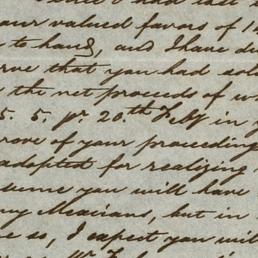 your valued favors of 1
to hand, and I have
erve that you had sol
the net proceeds of
5. 5. pr. 20th Feby in
rove of your proceeding
adopted for realizing
sume you will have
ny Mexicans, but in
so, I expect you wil